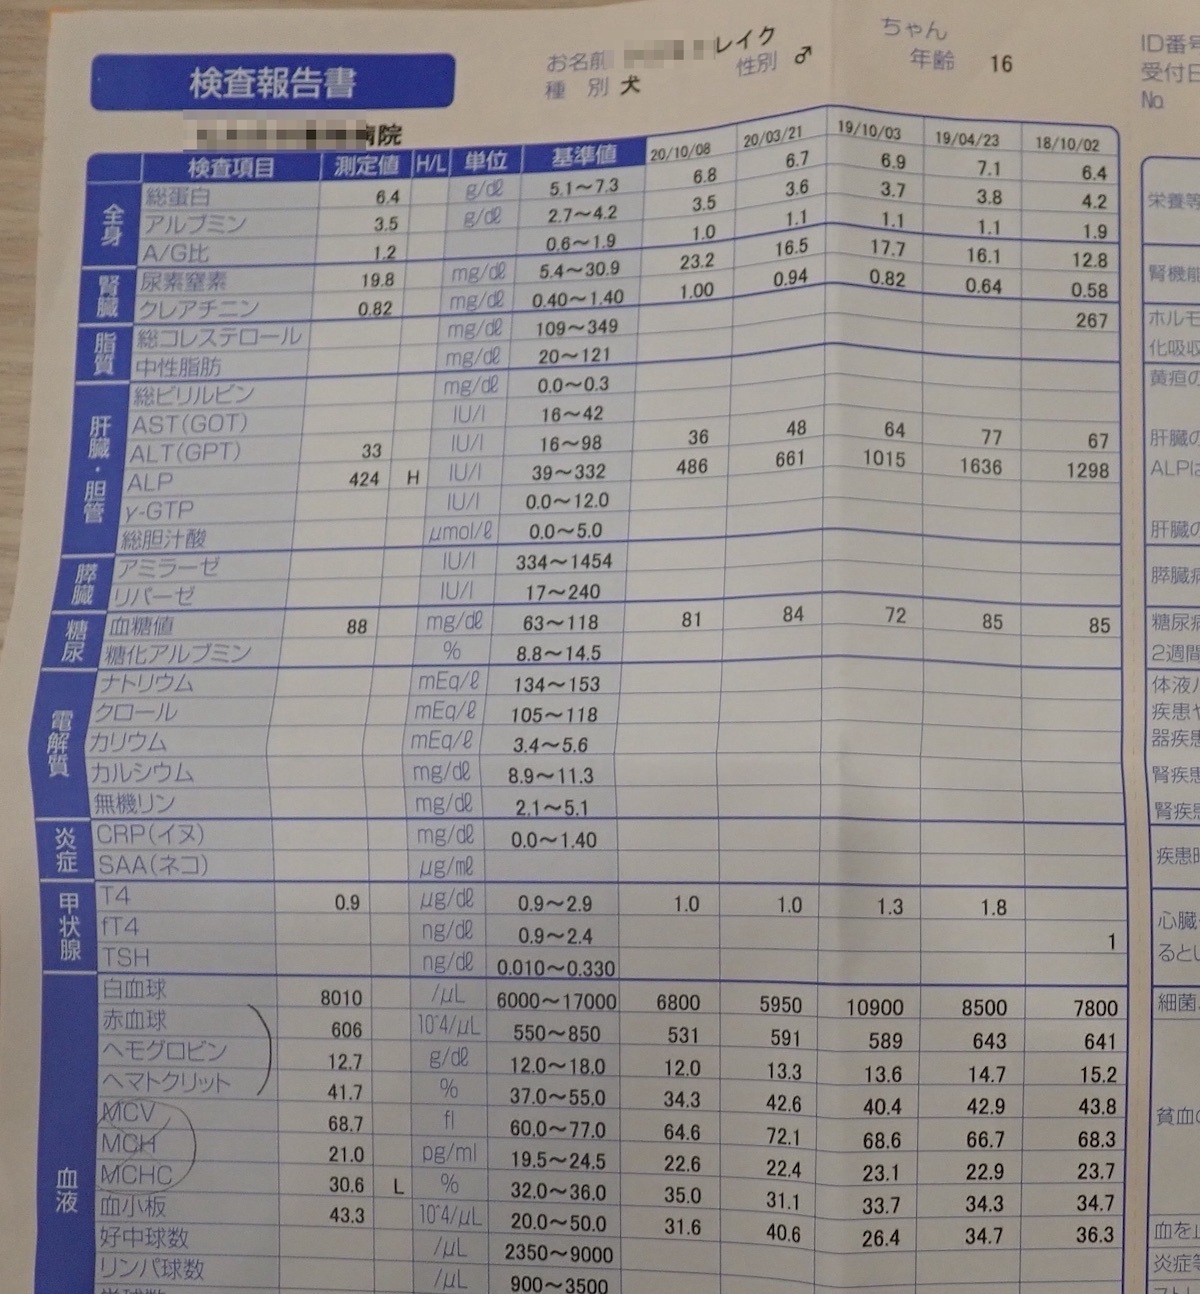 検査報告書
お名前 レイク ちゃん
種 別 犬 性別 ♂ 年齢 16
ID番号
受付日
No.
病院
検査項目 測定値 H/L 単位 基準値 20/10/08 20/03/21 19/10/03 19/04/23 18/10/02
全身
総蛋白 6.4 g/dℓ 5.1〜7.3 6.8 6.7 6.9 7.1 6.4
アルブミン 3.5 g/dℓ 2.7〜4.2 3.5 3.6 3.7 3.8 4.2
A/G比 1.2 0.6〜1.9 1.0 1.1 1.1 1.1 1.9
腎臓
尿素窒素 19.8 mg/dℓ 5.4〜30.9 23.2 16.5 17.7 16.1 12.8
クレアチニン 0.82 mg/dℓ 0.40〜1.40 1.00 0.94 0.82 0.64 0.58
脂質
総コレステロール mg/dℓ 109〜349 267
中性脂肪 mg/dℓ 20〜121
肝臓・胆管
総ビリルビン mg/dℓ 0.0〜0.3
AST(GOT) IU/l 16〜42
ALT(GPT) 33 IU/l 16〜98 36 48 64 77 67
ALP 424 H IU/l 39〜332 486 661 1015 1636 1298
γ-GTP IU/l 0.0〜12.0
総胆汁酸 μmol/ℓ 0.0〜5.0
膵臓
アミラーゼ IU/l 334〜1454
リパーゼ IU/l 17〜240
糖尿
血糖値 88 mg/dℓ 63〜118 81 84 72 85 85
糖化アルブミン % 8.8〜14.5
電解質
ナトリウム mEq/ℓ 134〜153
クロール mEq/ℓ 105〜118
カリウム mEq/ℓ 3.4〜5.6
カルシウム mg/dℓ 8.9〜11.3
無機リン mg/dℓ 2.1〜5.1
炎症
CRP(イヌ) mg/dℓ 0.0〜1.40
SAA(ネコ) μg/mℓ
甲状腺
T4 0.9 μg/dℓ 0.9〜2.9 1.0 1.0 1.3 1.8
fT4 ng/dℓ 0.9〜2.4 1
TSH ng/dℓ 0.010〜0.330
血液
白血球 8010 /μL 6000〜17000 6800 5950 10900 8500 7800
赤血球 606 10^4/μL 550〜850 531 591 589 643 641
ヘモグロビン 12.7 g/dℓ 12.0〜18.0 12.0 13.3 13.6 14.7 15.2
ヘマトクリット 41.7 % 37.0〜55.0 34.3 42.6 40.4 42.9 43.8
MCV 68.7 fl 60.0〜77.0 64.6 72.1 68.6 66.7 68.3
MCH 21.0 pg/ml 19.5〜24.5 22.6 22.4 23.1 22.9 23.7
MCHC 30.6 L % 32.0〜36.0 35.0 31.1 33.7 34.3 34.7
血小板 43.3 10^4/μL 20.0〜50.0 31.6 40.6 26.4 34.7 36.3
好中球数 /μL 2350〜9000
リンパ球数 /μL 900〜3500
栄養等
腎機能
ホルモ
化吸収
黄疸の
肝臓の
ALPは
肝臓の
膵臓病
糖尿病
2週間
体液バ
疾患や
器疾患
腎疾患
腎疾患
疾患時
心臓
るとい
細菌
貧血の
血を止
炎症等